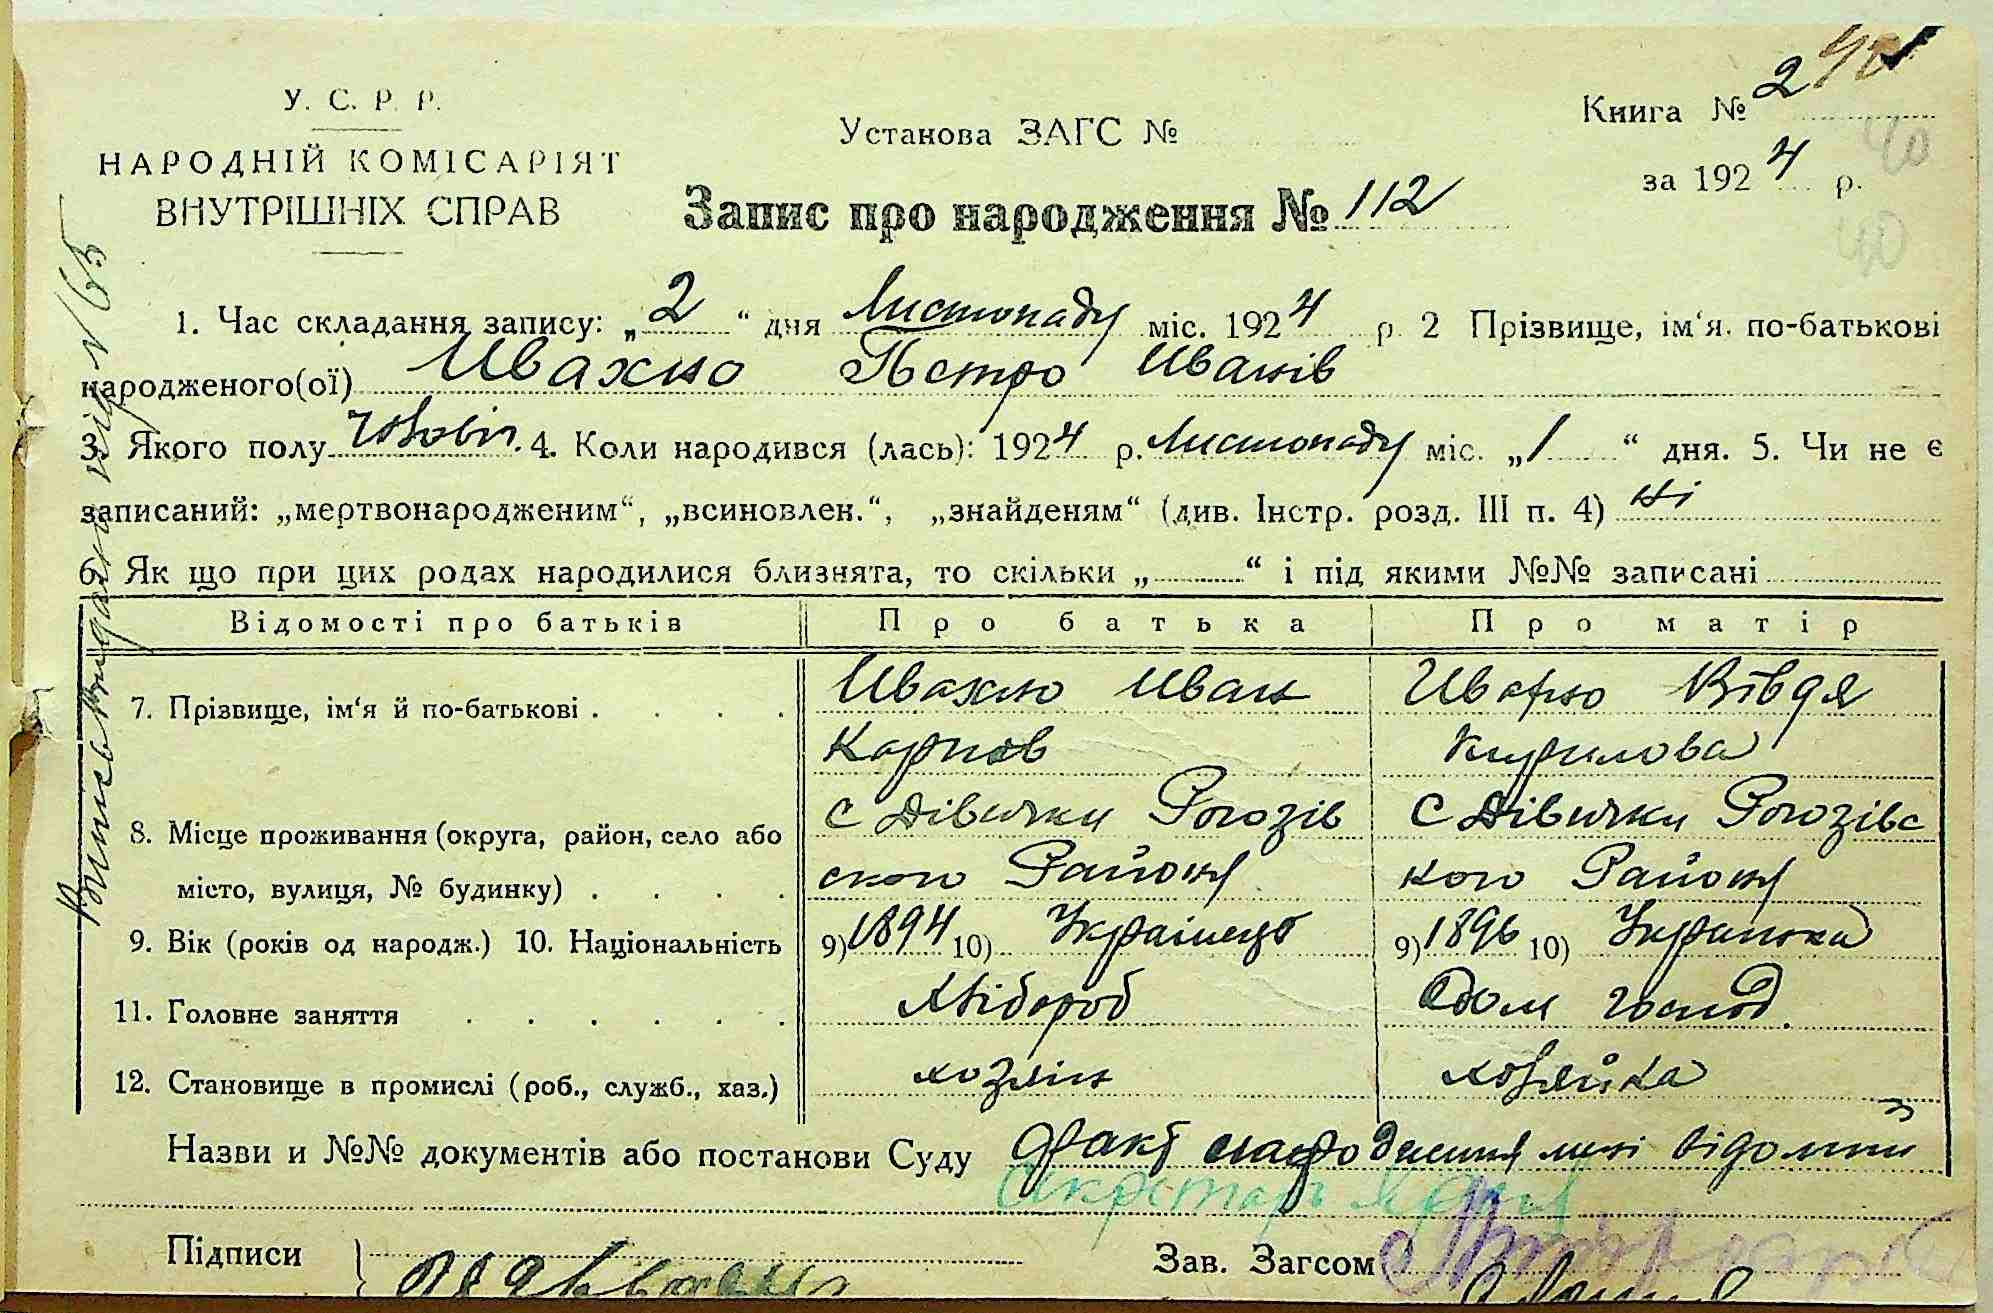 У. С. Р. Р.
НАРОДНІЙ КОМІСАРІЯТ
ВНУТРІШНІХ СПРАВ
Установа ЗАГС №
Запис про народження № 112
Книга № 2
за 1924 р.
40
40
1. Час складання запису: „2“ дня Листопаду міс. 1924 р 2 Прізвище, ім‘я. по-батькові
народженого(ої) Ивахно Петро Иванів
3. Якого полу Чоловіч. 4. Коли народився (лась): 1924 р. Листопаду міс. „1“ дня. 5. Чи не є
записаний: „мертвонародженим“, „всиновлен.“, „знайденям“ (див. Інстр. розд. III п. 4) Ні
6. Як що при цих родах народилися близнята, то скільки „ “ і під якими №№ записані
Відомості про батьків Про батька Про матір
7. Прізвище, ім‘я й по-батькові . . . . Ивахно Иван Ивахно Вівдя
Карпов Кирилова
8. Місце проживання (округа, район, село або С Дівички Рогозів С Дівички Рогозівс
місто, вулиця, № будинку) . . . . ского Району кого Району
9. Вік (років од народж.) 10. Національність 9) 1894 10) Українець 9) 1896 10) Українка
11. Головне заняття . . . . . . Хлібороб Дом господ.
12. Становище в промислі (роб., служб., хаз.) хозяін хозяйка
Назви и №№ документів або постанови Суду Факт народження мені відомий
Секретарь
Підписи
Зав. Загсом